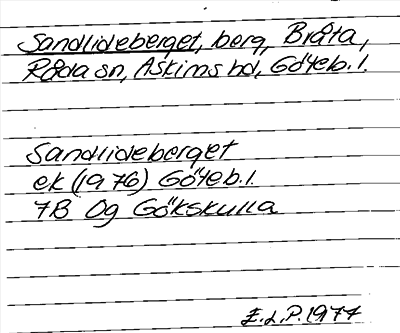 Sandlideberget, berg, Bråta,
Råda sn, Askims hd, Göteb. l.
Sandlideberget
ek (1976) Göteb. l.
7B 0g Gökskulla
E.L.P. 1977